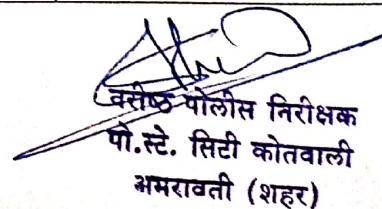 वरीष्ठ पोलीस निरीक्षक
पो.स्टे. सिटी कोतवाली
अमरावती (शहर)